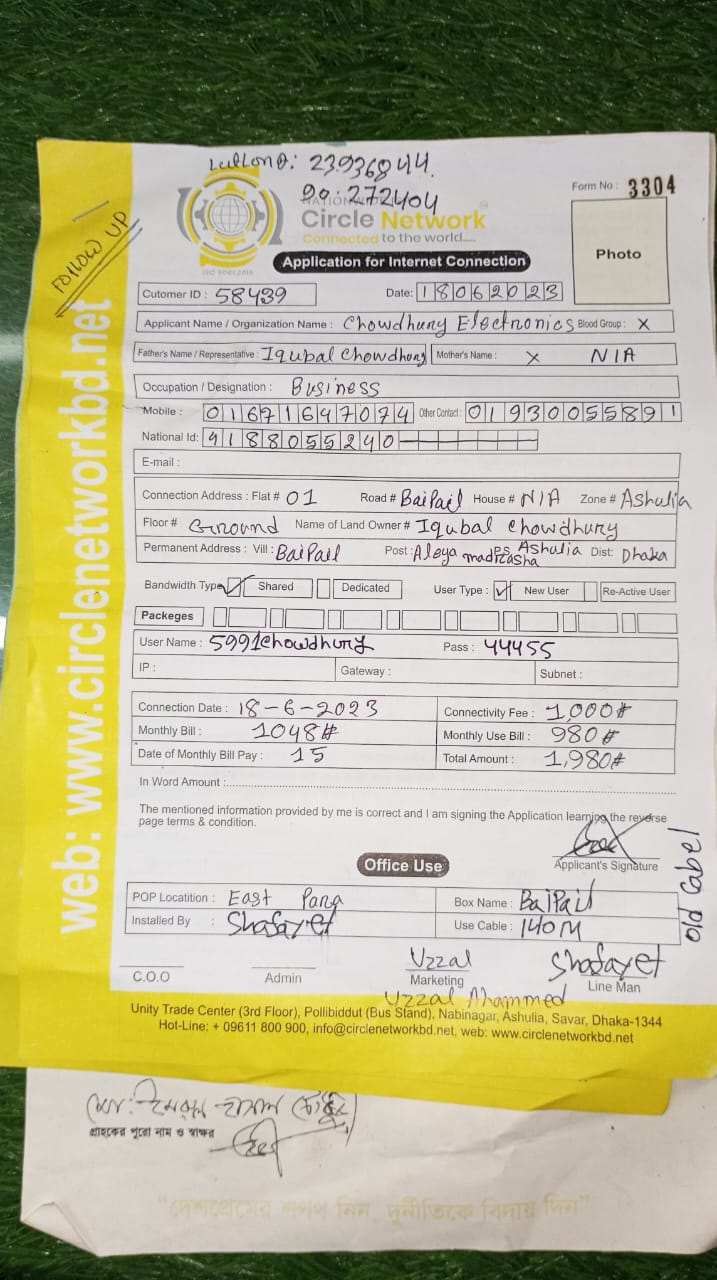 23936844.
99:272404
Form No : 3304
FOLLOW UP
Circle Network
Connected to the world.....
ISO 9001:2015
Photo
Application for Internet Connection
Cutomer ID : 58439 Date: 18062023
Applicant Name / Organization Name : Chowdhury Electronics Blood Group : X
Father's Name / Representative : Iqubal Chowdhury Mother's Name : X N/A
Occupation / Designation : Business
Mobile : 01671647074 Other Contact : 01930055891
National Id: 9188055240
E-mail :
Connection Address : Flat # 01 Road # BaiPail House # N/A Zone # Ashulia
Floor # Ground Name of Land Owner # Iqubal Chowdhury
Permanent Address : Vill : BaiPail Post : Aleya madrasha PS Ashulia Dist: Dhaka
Bandwidth Type Shared Dedicated User Type : New User Re-Active User
Packeges
User Name : 5991chowdhury Pass : 44455
IP : Gateway : Subnet :
Connection Date : 18-6-2023 Connectivity Fee : 1,000#
Monthly Bill : 1048# Monthly Use Bill : 980#
Date of Monthly Bill Pay : 15 Total Amount : 1,980#
In Word Amount :
The mentioned information provided by me is correct and I am signing the Application learning the reverse
page terms & condition.
Applicant's Signature
Office Use
Old Cabel
POP Locatition : East Para Box Name : BaiPail
Installed By : Shafayet Use Cable : 140M
Uzzal Shafayet
C.O.O Admin Marketing Line Man
Uzzal Ahammed
Unity Trade Center (3rd Floor), Pollibiddut (Bus Stand), Nabinagar, Ashulia, Savar, Dhaka-1344
Hot-Line: + 09611 800 900, info@circlenetworkbd.net, web: www.circlenetworkbd.net
web: www.circlenetworkbd.net
মো: ইমরান হাসান
গ্রাহকের পুরো নাম ও স্বাক্ষর
“দেশপ্রেমের শপথ নিন, দুর্নীতিকে বিদায় দিন”